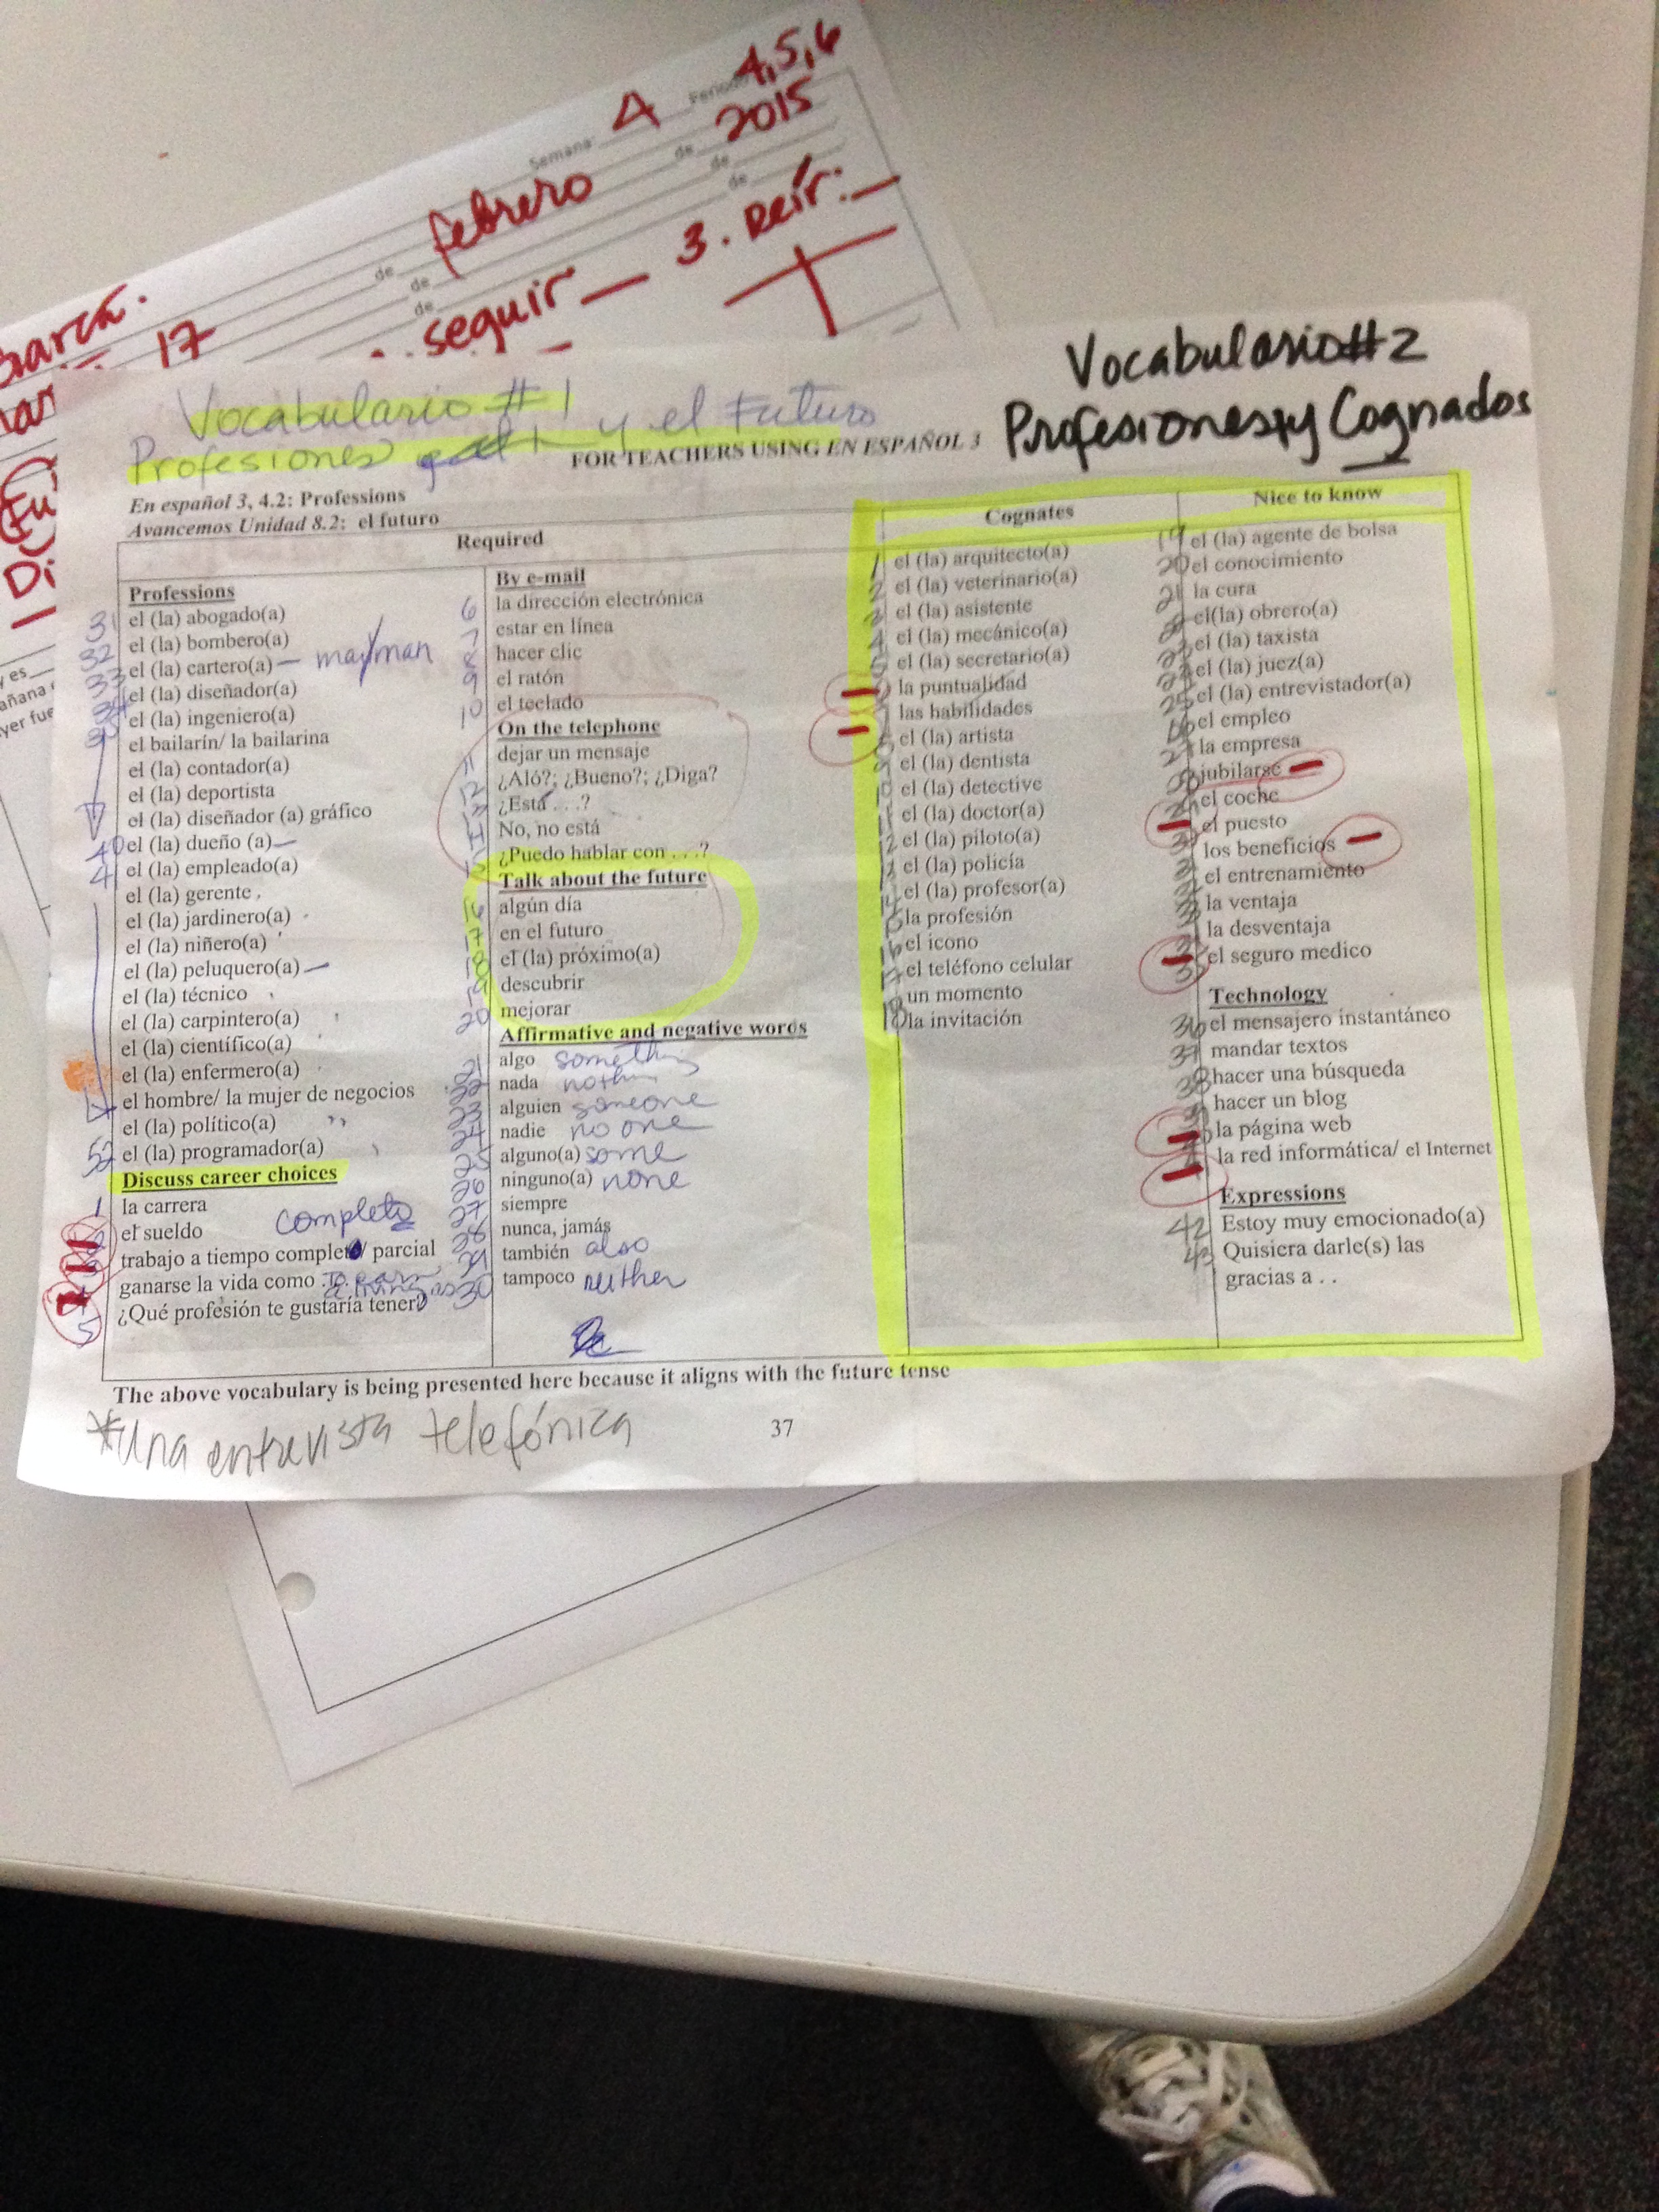 Semana: 4 Periodo 4,5,6
de febrero de 2015
de de
de de
17
seguir 3. Reír:
Di
y es
añana
yer fue
Vocabulario #1
Profesiones y el Futuro
Vocabulario #2
Profesiones y Cognados
FOR TEACHERS USING EN ESPAÑOL 3
En español 3, 4.2: Professions
Avancemos Unidad 8.2: el futuro
Required
Professions
31 el (la) abogado(a)
32 el (la) bombero(a)
33 el (la) cartero(a) — mailman
34 el (la) diseñador(a)
35 el (la) ingeniero(a)
el bailarín/ la bailarina
el (la) contador(a)
el (la) deportista
el (la) diseñador (a) gráfico
40 el (la) dueño (a)—
41 el (la) empleado(a)
el (la) gerente
el (la) jardinero(a)
el (la) niñero(a)
el (la) peluquero(a) —
el (la) técnico
el (la) carpintero(a)
el (la) científico(a)
el (la) enfermero(a)
el hombre/ la mujer de negocios
el (la) político(a)
52 el (la) programador(a)
Discuss career choices
1 la carrera
el sueldo completo
trabajo a tiempo completo/ parcial
ganarse la vida como to earn a living as
5 ¿Qué profesión te gustaría tener?
By e-mail
6 la dirección electrónica
7 estar en línea
8 hacer clic
9 el ratón
10 el teclado
On the telephone
11 dejar un mensaje
12 ¿Aló?; ¿Bueno?; ¿Diga?
13 ¿Está . . .?
14 No, no está
15 ¿Puedo hablar con . . .?
Talk about the future
16 algún día
17 en el futuro
18 el (la) próximo(a)
19 descubrir
20 mejorar
Affirmative and negative words
21 algo something
22 nada nothin
23 alguien someone
24 nadie no one
25 alguno(a) some
26 ninguno(a) none
27 siempre
28 nunca, jamás
29 también also
30 tampoco neither
Cognates
1 el (la) arquitecto(a)
2 el (la) veterinario(a)
3 el (la) asistente
4 el (la) mecánico(a)
5 el (la) secretario(a)
la puntualidad
las habilidades
el (la) artista
9 el (la) dentista
10 el (la) detective
11 el (la) doctor(a)
12 el (la) piloto(a)
13 el (la) policía
14 el (la) profesor(a)
15 la profesión
16 el icono
17 el teléfono celular
18 un momento
la invitación
Nice to know
19 el (la) agente de bolsa
20 el conocimiento
21 la cura
el(la) obrero(a)
el (la) taxista
24 el (la) juez(a)
25 el (la) entrevistador(a)
26 el empleo
27 la empresa
jubilarse
el coche
el puesto
los beneficios
el entrenamiento
la ventaja
la desventaja
35 el seguro medico
Technology
36 el mensajero instantáneo
37 mandar textos
38 hacer una búsqueda
39 hacer un blog
la página web
la red informática/ el Internet
Expressions
42 Estoy muy emocionado(a)
43 Quisiera darle(s) las
gracias a . .
The above vocabulary is being presented here because it aligns with the future tense
*Una entrevista telefónica
37